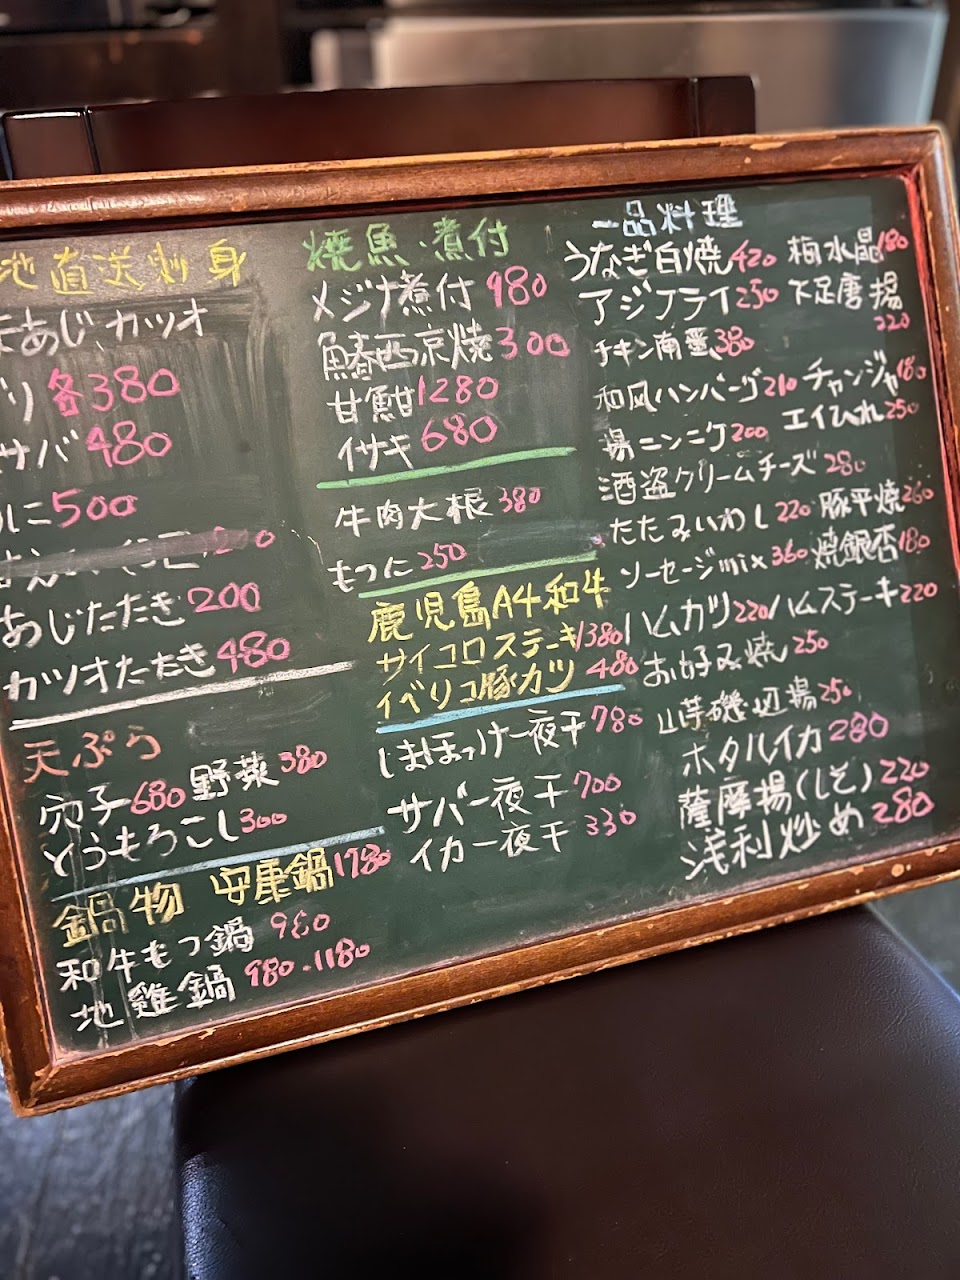 地直送刺身
あじ、カツオ
り 各380
サバ 480
に 500
あじたたき 200
カツオたたき 480
天ぷら
穴子 680 野菜 380
とうもろこし 300
鍋物 安康鍋 1780
和牛もつ鍋 980
地雞鍋 980.1180
焼魚、煮付
メジナ煮付 980
鰆西京焼 300
甘魽 1280
イサキ 680
牛肉大根 380
もつに 250
鹿児島A4和牛
サイコロステーキ 1380
イベリコ豚カツ 480
しまほっけ一夜干 780
サバ一夜干 700
イカ一夜干 330
一品料理
うなぎ白焼 420 梅水晶 180
アジフライ 250 下足唐揚 220
チキン南蛮 380
和風ハンバーグ 210 チャンジャ 180
揚ニンニク 200 エイひれ 250
酒盗クリームチーズ 280
たたみいわし 220 豚平焼 260
ソーセージmix 360 焼銀杏 180
ハムカツ 220 ハムステーキ 220
お好み焼 250
山芋磯辺揚 250
ホタルイカ 280
薩摩揚(しそ) 220
浅利炒め 280